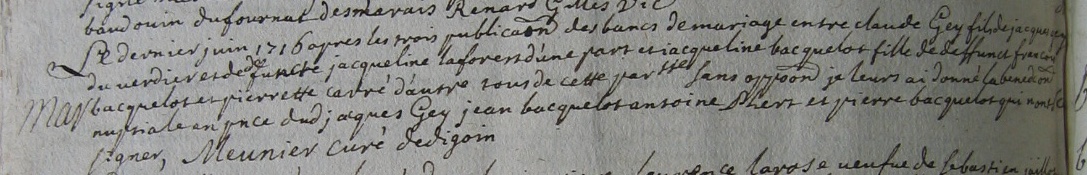 baudouin dufournat desmarais Renard G Mes Vic
Le dernier juin 1716 apres les trois publicaōn des bancs de mariage entre claude Gey fils de jacques
du verdier et de deffuncte jacqueline laforest d'une part et jacqueline bacquelot fille de deffunct francois
Mar bacquelot et pierrette carré d'autre tous de cette parsse sans oppoōn je leurs ai donné la benediōn
nuptiale en pnce dud jacques Gey jean bacquelot antoine et pierre bacquelot qui nont sce
signer, Meunier curé dedigoin
larose veufue de sebastien